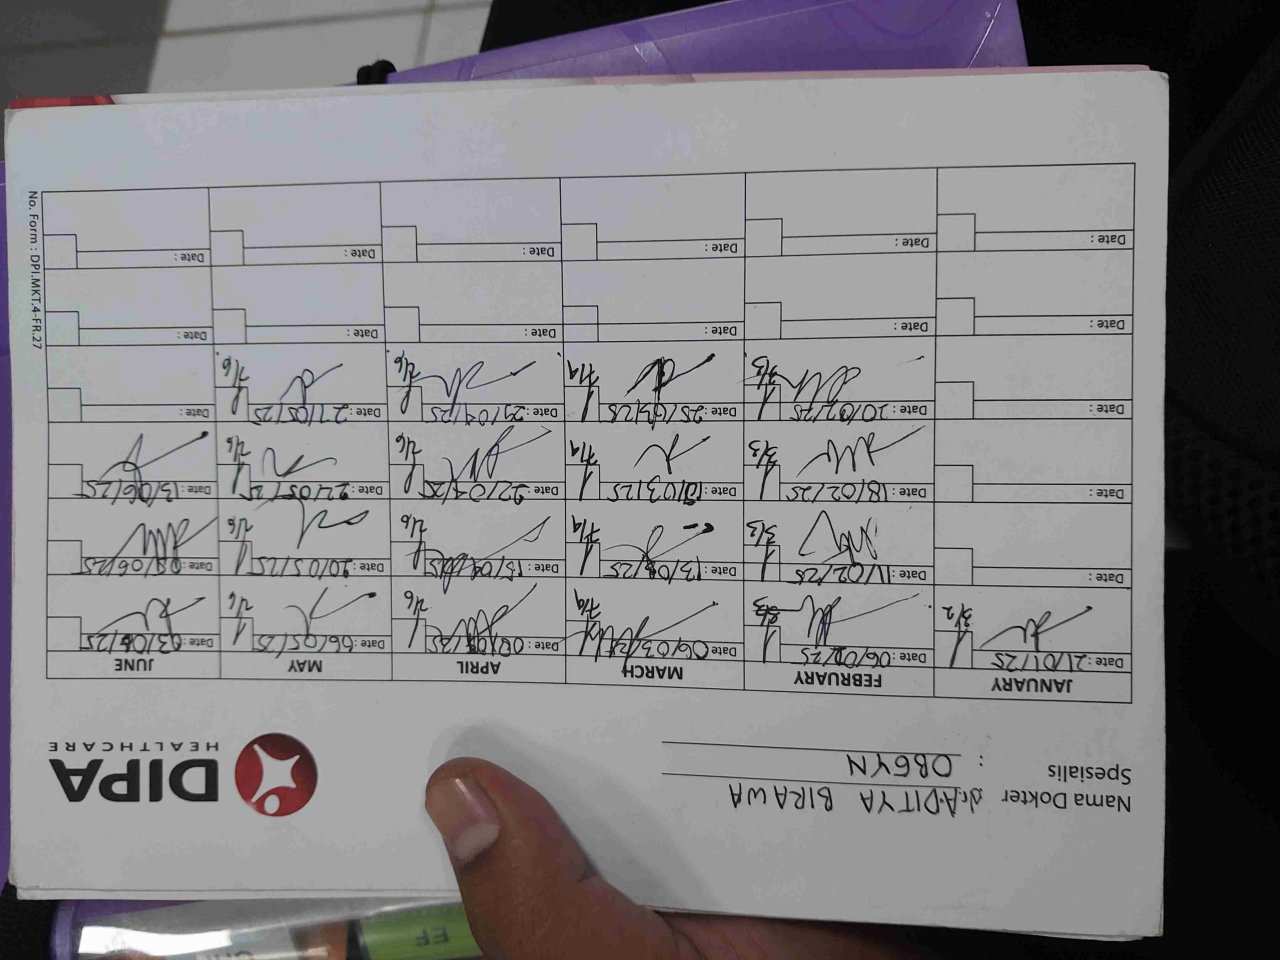 DIPA
HEALTHCARE
Nama Dokter dr. ADITYA BIRAWA
Spesialis : OBGYN
JANUARY FEBRUARY MARCH APRIL MAY JUNE
Date: 21/01/25 Date: 06/02/25 Date: 06/03/25 Date: Date: 06/05/25 Date: 03/06/25
3/2 3/3 7/4 2/6 2/6
Date: Date: 11/02/25 Date: 13/03/25 Date: 15/04/25 Date: 20/05/25 Date: 09/06/25
3/3 7/4 2/6 2/6
Date: Date: 18/02/25 Date: 18/03/25 Date: 22/04/25 Date: 22/05/25 Date: 13/06/25
3/3 7/4 2/6 2/6
Date: Date: 20/02/25 Date: 25/03/25 Date: 29/04/25 Date: 27/05/25 Date:
3/3 7/4 2/6 2/6
Date: Date: Date: Date: Date: Date:
Date: Date: Date: Date: Date: Date:
No. Form : DPI.MKT.4-FR.27
EF